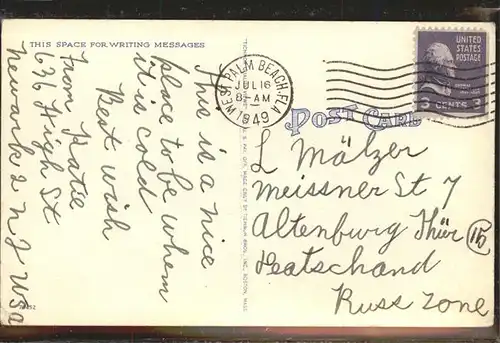 THIS SPACE FOR WRITING MESSAGES
This is a nice
place to be when
it is cold
Best wish
from Katie
636 High St
Newark 2 N J USA
WEST PALM BEACH, FLA.
JUL 16
8-AM
1949
UNITED
STATES
POSTAGE
3 CENTS 3
POST CARD
L Mälzer
Meissner St 7
Altenburg Thür
Deatschand
Russ Zone